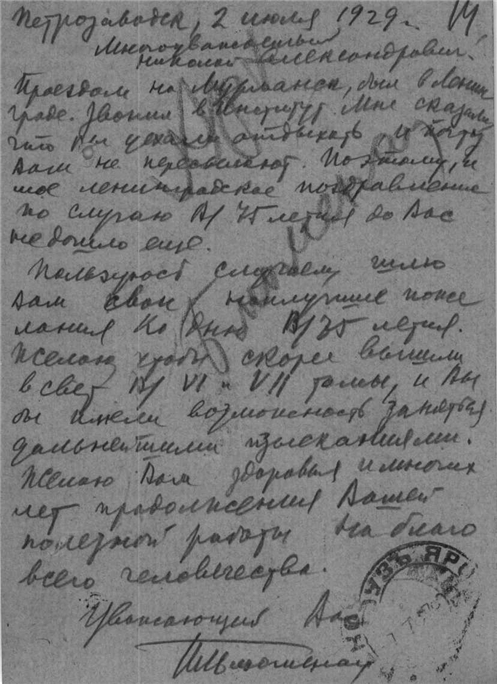 Петрозаводск, 2 июля 1929 г.
Многоуважаемый
Николай Александрович!
Проездом на Мурманск, был в Ленин
граде. Звонил в Институт. Мне сказали
что Вы уехали отдыхать и почту
Вам не пересылают. Поэтому, и
мое ленинградское поздравление
по случаю В/ 75 летия до Вас
не дошло еще.
Пользуюсь случаем, шлю
Вам свои наилучшие поже
лания ко дню В/75 летия.
Желаю чтобы скорее вышли
в свет В/ VI и VII томы, и Вы
бы имели возможность заняться
дальнейшими изысканиями.
Желаю Вам здоровья и многих
лет продолжения Вашей
полезной работы на благо
всего человечества.
Уважающий Вас